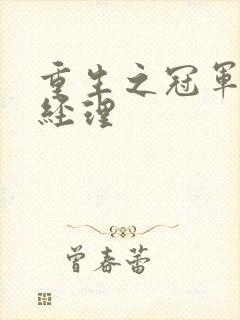 重生之冠軍
經理
曾春蕾